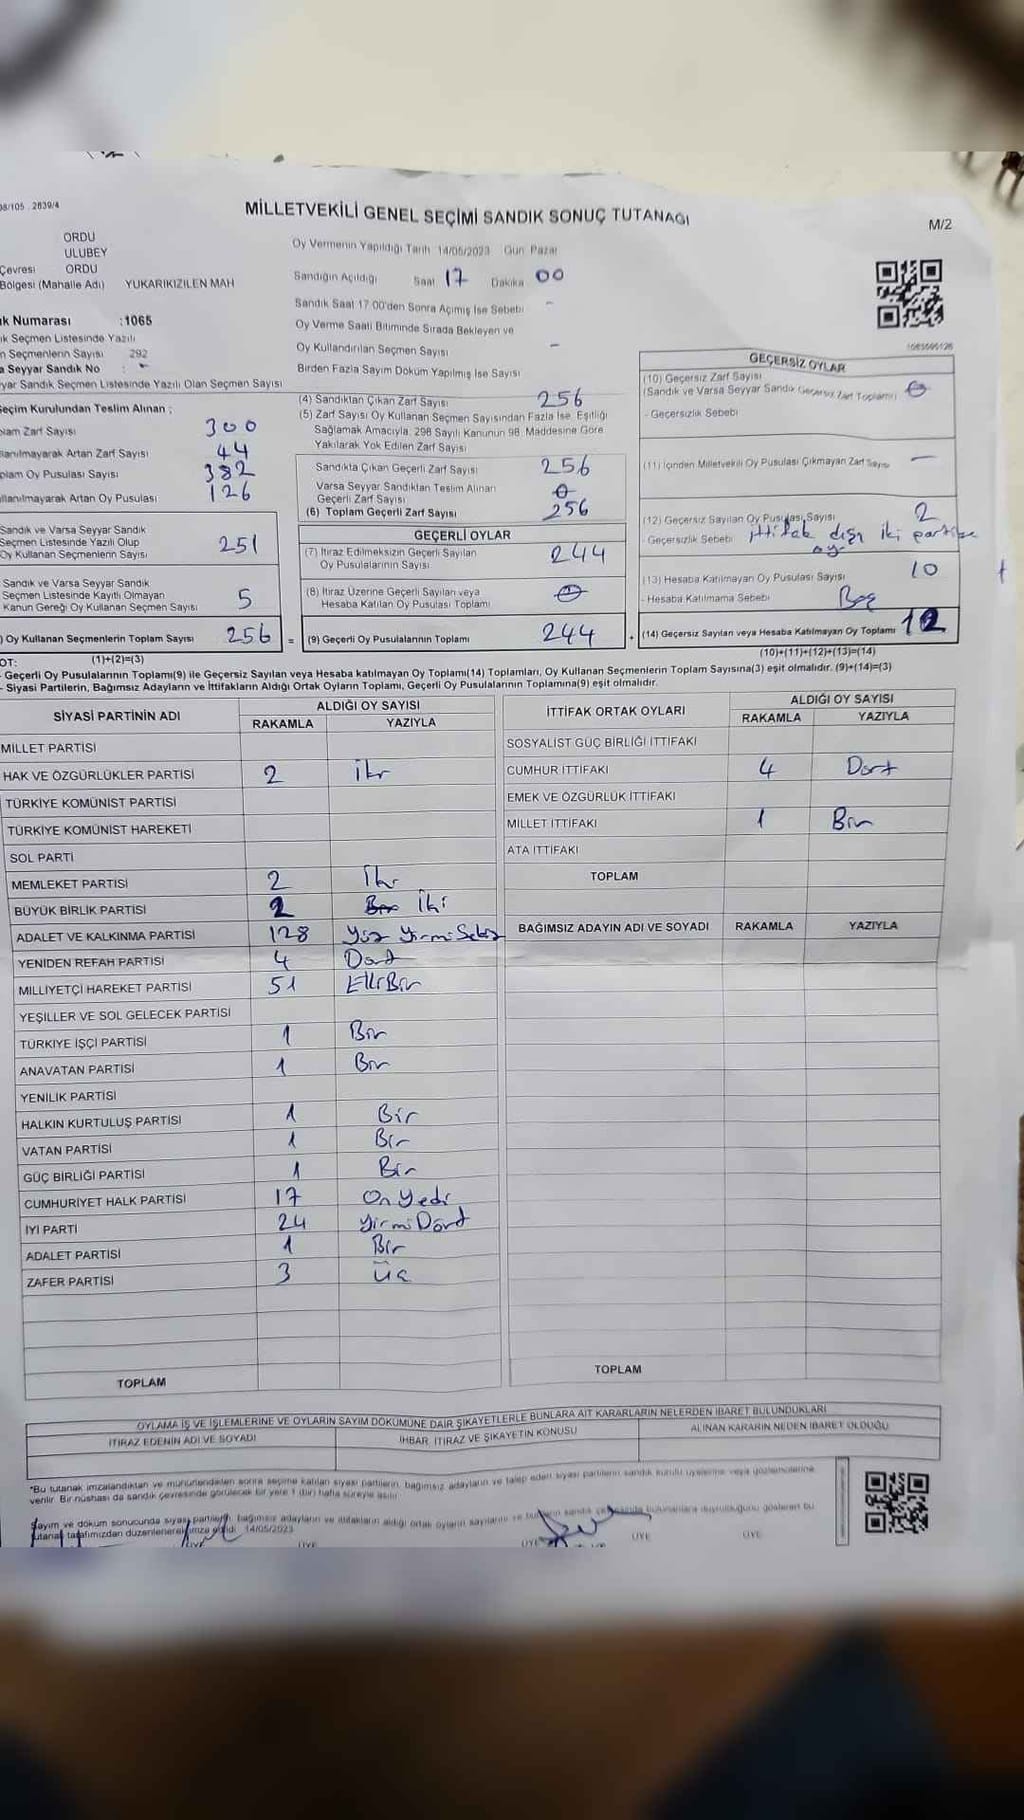 98/105 . 2839/4
MİLLETVEKİLİ GENEL SEÇİMİ SANDIK SONUÇ TUTANAĞI
M/2
ORDU
ULUBEY
Çevresi ORDU
Bölgesi (Mahalle Adı) YUKARIKIZILEN MAH
Oy Vermenin Yapıldığı Tarih 14/05/2023 Gün Pazar
Sandığın Açıldığı Saat 17 Dakika 00
Sandık Saat 17:00'den Sonra Açımış İse Sebebi -
Oy Verme Saati Bitiminde Sırada Bekleyen ve
Oy Kullandırılan Seçmen Sayısı -
Birden Fazla Sayım Döküm Yapılmış İse Sayısı
k Numarası :1065
ık Seçmen Listesinde Yazılı
n Seçmenlerin Sayısı 292
a Seyyar Sandık No : -
yar Sandık Seçmen Listesinde Yazılı Olan Seçmen Sayısı
eçim Kurulundan Teslim Alınan ;
lam Zarf Sayısı 300
lanılmayarak Artan Zarf Sayısı 44
plam Oy Pusulası Sayısı 382
llanılmayarak Artan Oy Pusulası 126
Sandık ve Varsa Seyyar Sandık
Seçmen Listesinde Yazılı Olup
Oy Kullanan Seçmenlerin Sayısı 251
Sandık ve Varsa Seyyar Sandık
Seçmen Listesinde Kayıtlı Olmayan
Kanun Gereği Oy Kullanan Seçmen Sayısı 5
) Oy Kullanan Seçmenlerin Toplam Sayısı 256 =
(4) Sandıktan Çıkan Zarf Sayısı 256
(5) Zarf Sayısı Oy Kullanan Seçmen Sayısından Fazla İse, Eşitliği
Sağlamak Amacıyla; 298 Sayılı Kanunun 98. Maddesine Göre
Yakılarak Yok Edilen Zarf Sayısı
Sandıkta Çıkan Geçerli Zarf Sayısı 256
Varsa Seyyar Sandıktan Teslim Alınan
Geçerli Zarf Sayısı 0
(6) Toplam Geçerli Zarf Sayısı 256
GEÇERLİ OYLAR
(7) İtiraz Edilmeksizin Geçerli Sayılan
Oy Pusulalarının Sayısı 244
(8) İtiraz Üzerine Geçerli Sayılan veya
Hesaba Katılan Oy Pusulası Toplamı 0
(9) Geçerli Oy Pusulalarının Toplamı 244 +
1065696126
GEÇERSİZ OYLAR
(10) Geçersiz Zarf Sayısı
(Sandık ve Varsa Seyyar Sandık Geçersiz Zarf Toplamı) 0
- Geçersizlik Sebebi
(11) İçinden Milletvekili Oy Pusulası Çıkmayan Zarf Sayısı -
(12) Geçersiz Sayılan Oy Pusulası Sayısı 2
- Geçersizlik Sebebi ittifak dışı iki partiye
oy
(13) Hesaba Katılmayan Oy Pusulası Sayısı 10
- Hesaba Katılmama Sebebi Boş
(14) Geçersiz Sayılan veya Hesaba Katılmayan Oy Toplamı 12
(10)+(11)+(12)+(13)=(14)
OT: (1)+(2)=(3)
- Geçerli Oy Pusulalarının Toplamı(9) ile Geçersiz Sayılan veya Hesaba katılmayan Oy Toplamı(14) Toplamları, Oy Kullanan Seçmenlerin Toplam Sayısına(3) eşit olmalıdır. (9)+(14)=(3)
- Siyasi Partilerin, Bağımsız Adayların ve İttifakların Aldığı Ortak Oyların Toplamı, Geçerli Oy Pusulalarının Toplamına(9) eşit olmalıdır.
SİYASİ PARTİNİN ADI ALDIĞI OY SAYISI
RAKAMLA YAZIYLA
MİLLET PARTİSİ
HAK VE ÖZGÜRLÜKLER PARTİSİ 2 İki
TÜRKİYE KOMÜNİST PARTİSİ
TÜRKİYE KOMÜNİST HAREKETİ
SOL PARTİ
MEMLEKET PARTİSİ 2 İki
BÜYÜK BİRLİK PARTİSİ 2 Bir İki
ADALET VE KALKINMA PARTİSİ 128 Yüz Yirmi Sekiz
YENİDEN REFAH PARTİSİ 4 Dört
MİLLİYETÇİ HAREKET PARTİSİ 51 Elli Bir
YEŞİLLER VE SOL GELECEK PARTİSİ
TÜRKİYE İŞÇİ PARTİSİ 1 Bir
ANAVATAN PARTİSİ 1 Bir
YENİLİK PARTİSİ
HALKIN KURTULUŞ PARTİSİ 1 Bir
VATAN PARTİSİ 1 Bir
GÜÇ BİRLİĞİ PARTİSİ 1 Bir
CUMHURİYET HALK PARTİSİ 17 On Yedi
İYİ PARTİ 24 Yirmi Dört
ADALET PARTİSİ 1 Bir
ZAFER PARTİSİ 3 Üç
TOPLAM
İTTİFAK ORTAK OYLARI ALDIĞI OY SAYISI
RAKAMLA YAZIYLA
SOSYALİST GÜÇ BİRLİĞİ İTTİFAKI
CUMHUR İTTİFAKI 4 Dört
EMEK VE ÖZGÜRLÜK İTTİFAKI
MİLLET İTTİFAKI 1 Bir
ATA İTTİFAKI
TOPLAM
BAĞIMSIZ ADAYIN ADI VE SOYADI RAKAMLA YAZIYLA
TOPLAM
OYLAMA İŞ VE İŞLEMLERİNE VE OYLARIN SAYIM DÖKÜMÜNE DAİR ŞİKAYETLERLE BUNLARA AİT KARARLARIN NELERDEN İBARET BULUNDUKLARI
İTİRAZ EDENİN ADI VE SOYADI İHBAR, İTİRAZ VE ŞİKAYETİN KONUSU ALINAN KARARIN NEDEN İBARET OLDUĞU
*Bu tutanak imzalandıktan ve mühürlendikten sonra seçime katılan siyasi partilerin, bağımsız adayların ve talep eden siyasi partilerin sandık kurulu üyelerine veya gözlemcilerine
verilir. Bir nüshası da sandık çevresinde görülecek bir yere 1 (bir) hafta süreyle asılır.
Sayım ve döküm sonucunda siyasi partilerin, bağımsız adayların ve ittifakların aldığı ortak oyların sayılarını ve bulunanlara duyurulduğunu gösteren bu
tutanak tarafımızdan düzenlenerek imza edildi. 14/05/2023
ÜYE ÜYE ÜYE ÜYE ÜYE